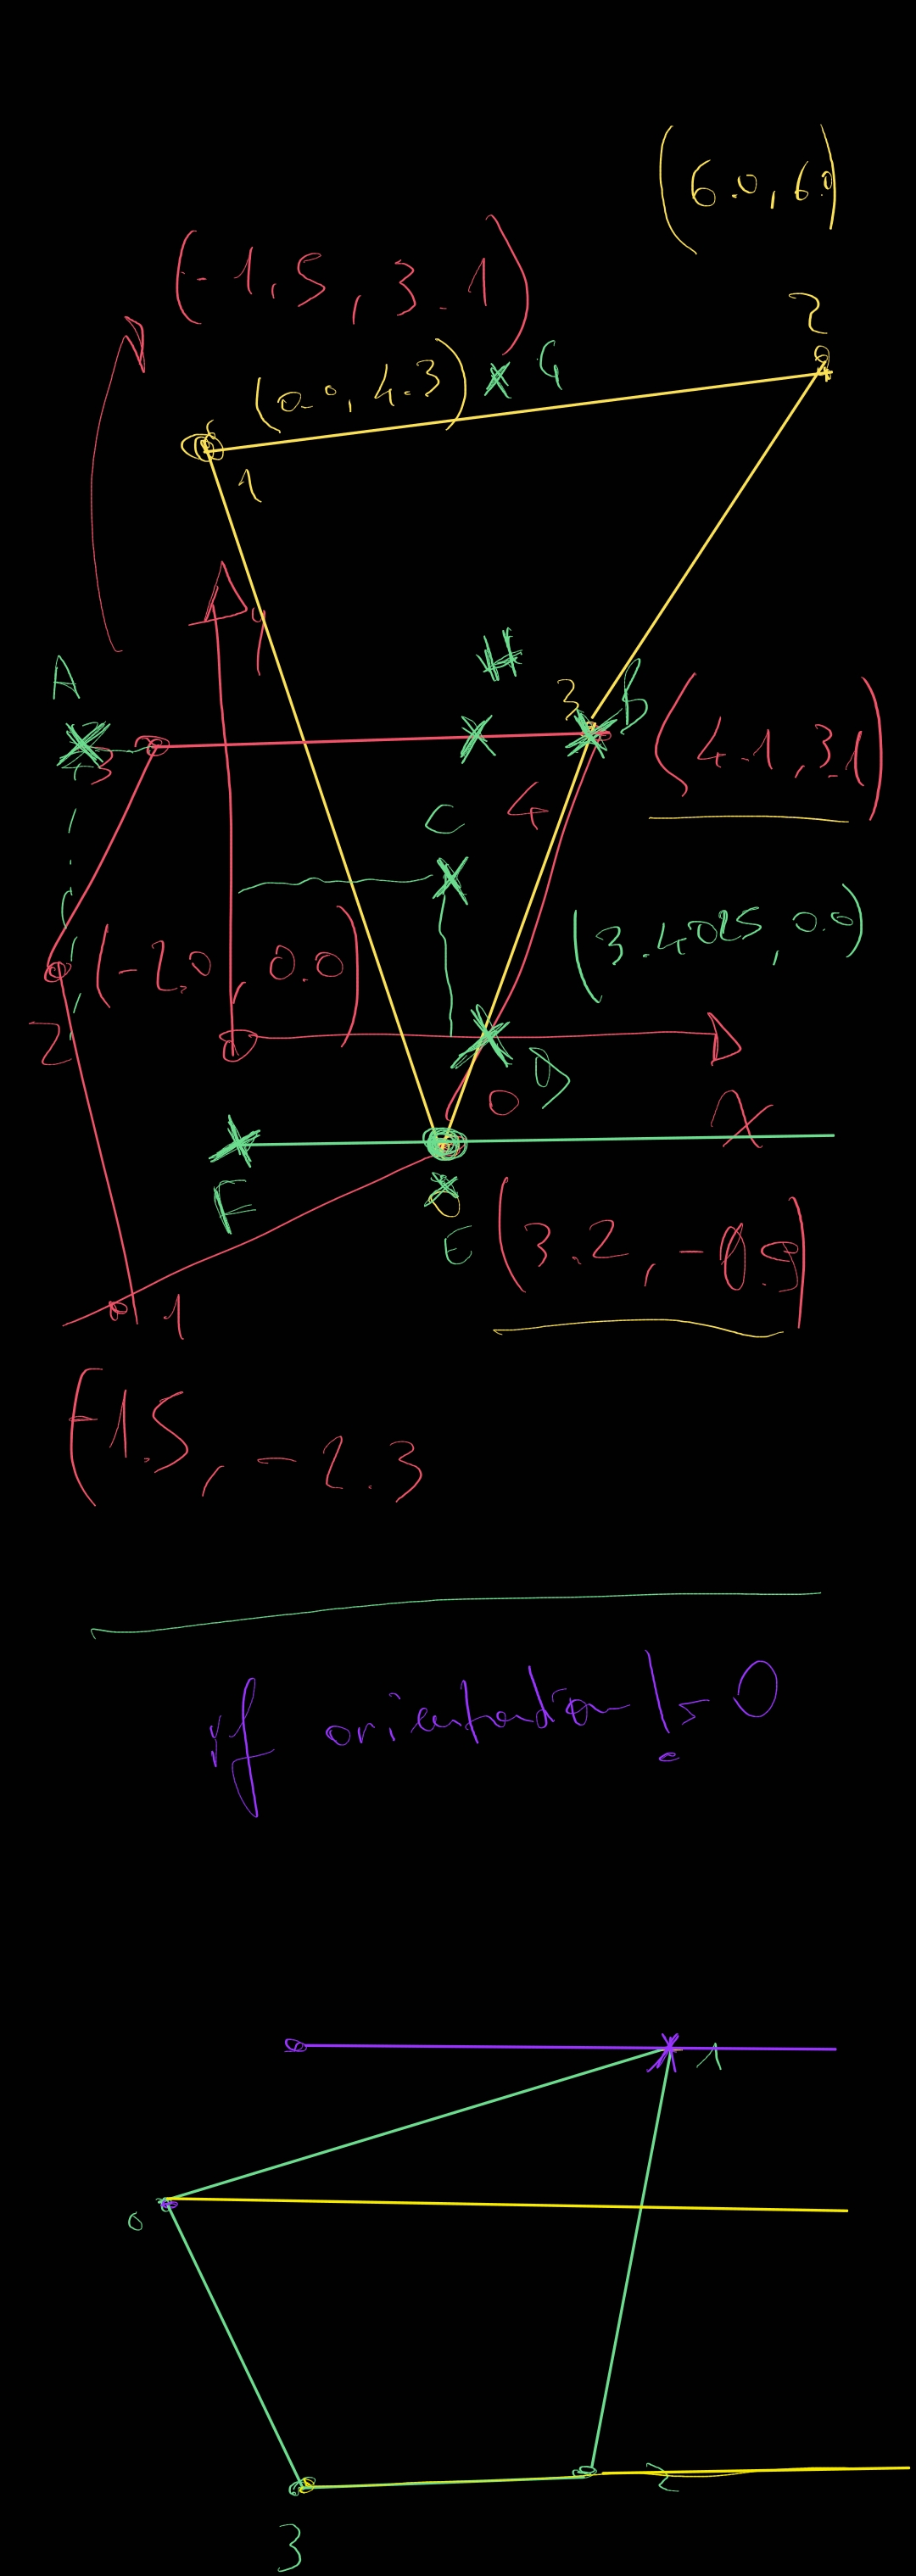 (6.0, 6.0)
(-1.5, 3.1)
2
(0.0, 4.3)
G
1
y
A
H
3
B
3
(4.1, 3.1)
C
4
(3.4025, 0.0)
(-2.0, 0.0)
2
D
0
X
F
0
E
(3.2, -0.9)
1
(-1.5, -2.3
if orientation != 0
1
0
2
3